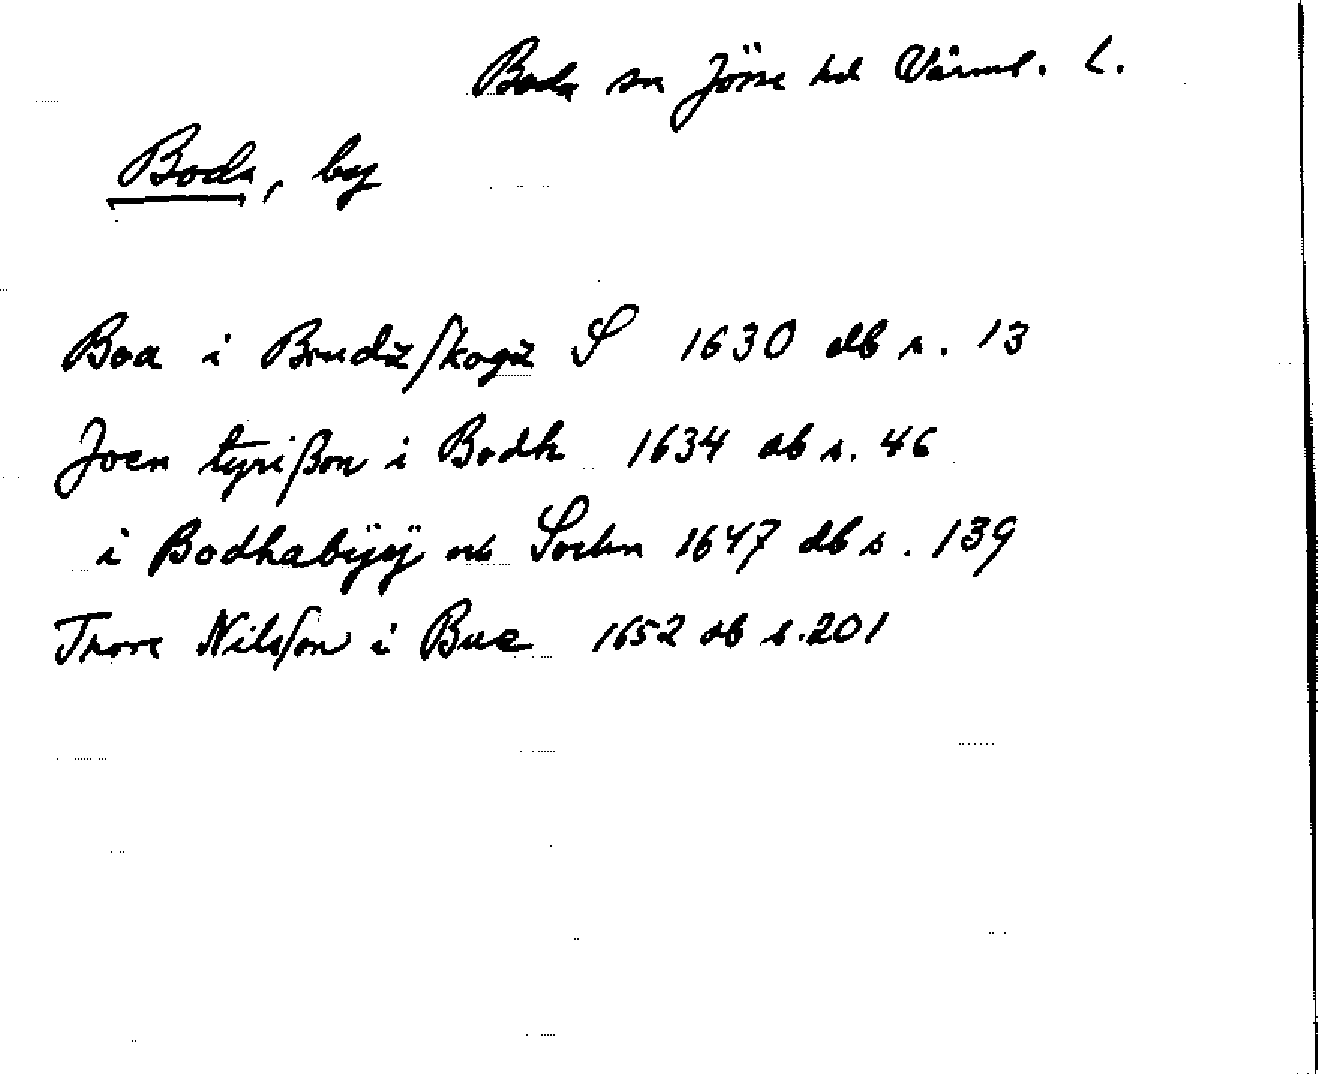 Boda sn Jösse hd Värml. L.
Boda, by
Boa i Brudzskogz S 1630 db s. 13
Joen tyrißon i Bodh 1634 db s. 46
i Bodhabÿÿ och Sochn 1647 db s. 139
Thore Nilsson i Bua 1652 db s. 201